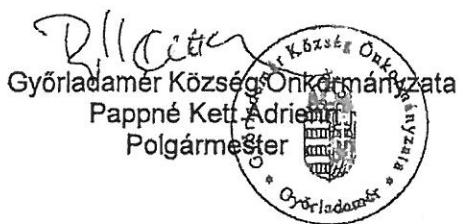 Győrladamér Község Önkormányzata
Pappné Kett Adrienn
Polgármester
Győrladamér Község Önkormányzata * Győrladamér *